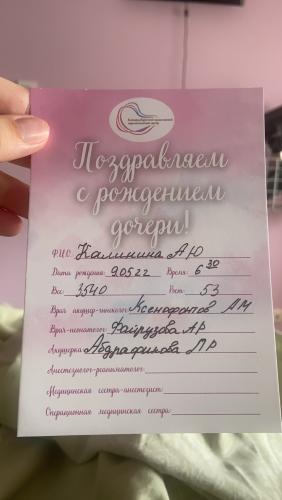 Екатеринбургский клинический
перинатальный центр
Поздравляем
с рождением
дочери!
Ф.И.О. Калинина А Ю
Дата рождения: 9.05.22 Время: 6 30
Вес: 3540 Рост: 53
Врач акушер-гинеколог: Ксенофонтов АМ
Врач-неонатолог: Файрузова АР
Акушерка: Абдрафикова ЛР
Анестезиолог-реаниматолог:
Медицинская сестра-анестезист:
Операционная медицинская сестра: